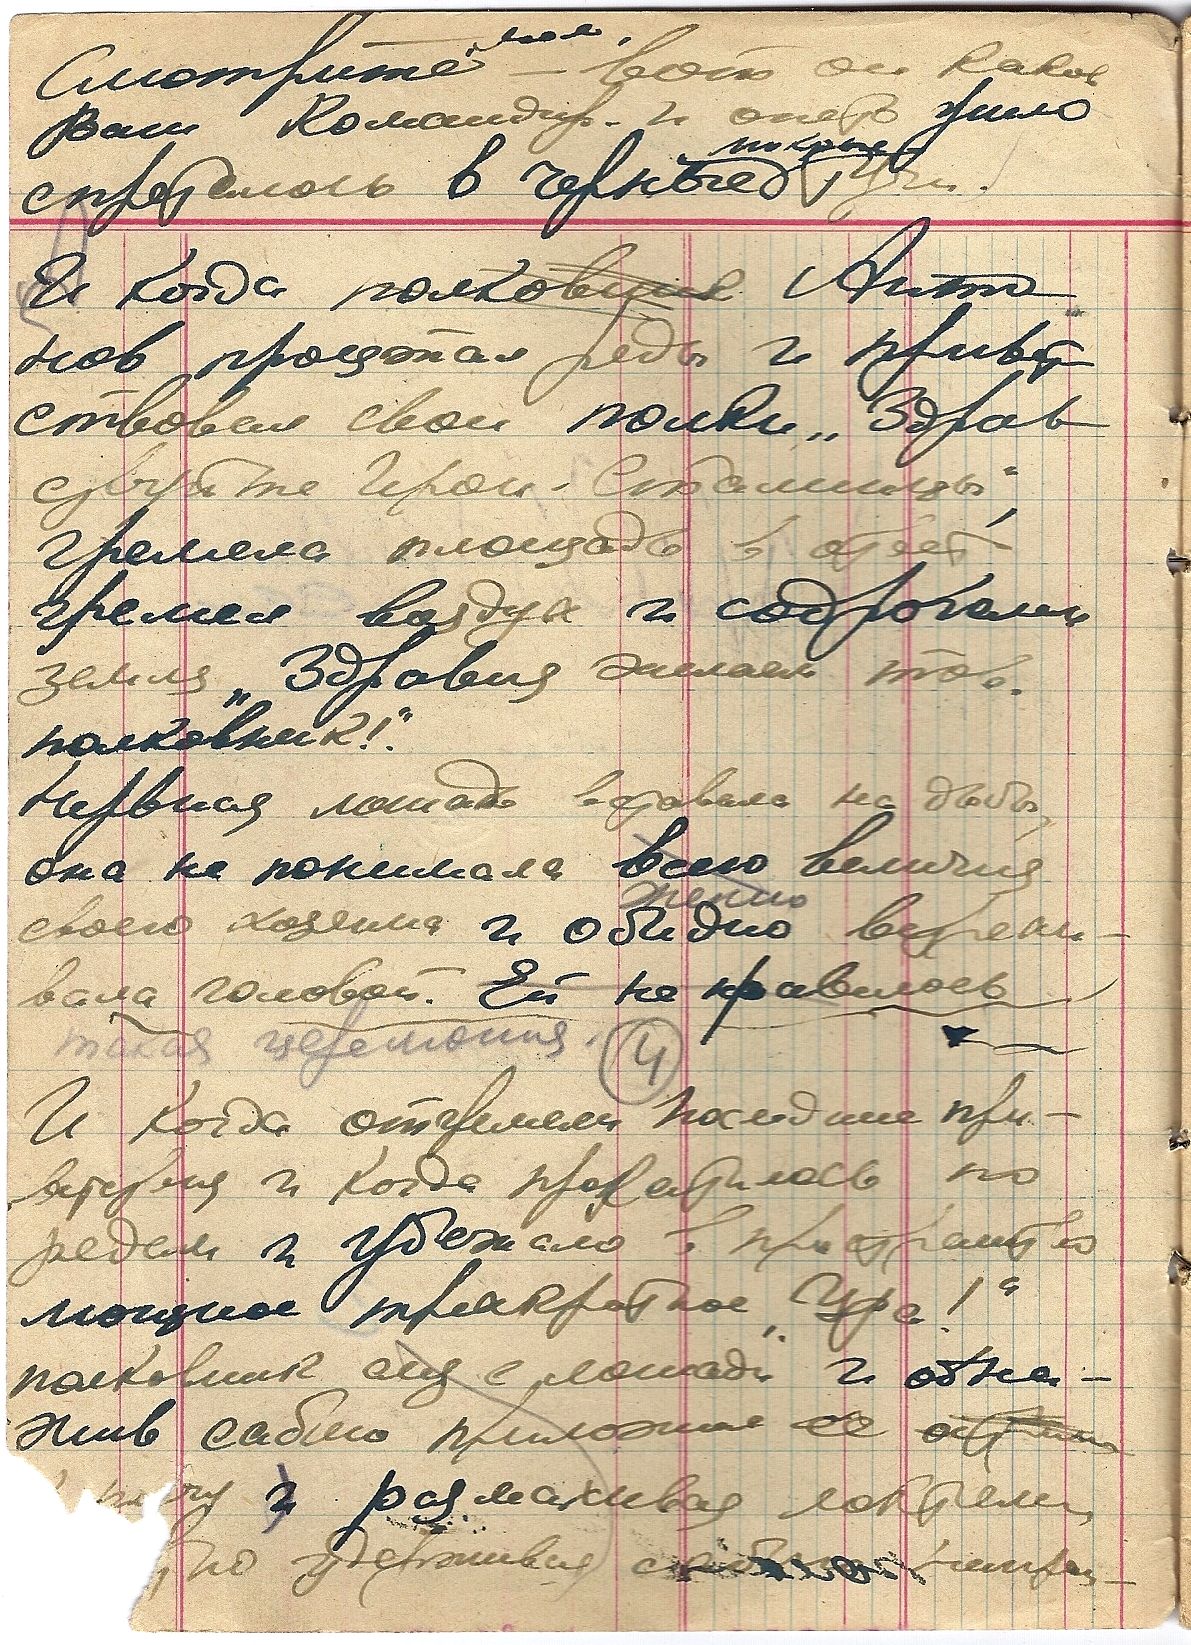 Смотрите мол, — вот он каков
Ваш Командир. и опять ушло
спряталось в черные тучи.
И когда полковник Анто
нов проезжал ряды и привет
ствовал свои полки „Здрав
ствуйте Герои - Сталинцы“
гремела площадь в ответ
гремел воздух и содрогалась
земля „Здравия желаем тов.
полковник!“
Нервная лошадь вставала на дыбы,
она не понимала всего величия
своего хозяина и обидно встряхи-
вала головой. Ей не нравилось
такая церемония.
4
И когда отгремели последние при-
ветствия и когда прокатилось по
рядам и убежало в пространство
мощное троекратное „Ура!“
полковник слез с лошади и обна-
жив саблю приложил ее
и размахивая локтем,
удерживая саблю